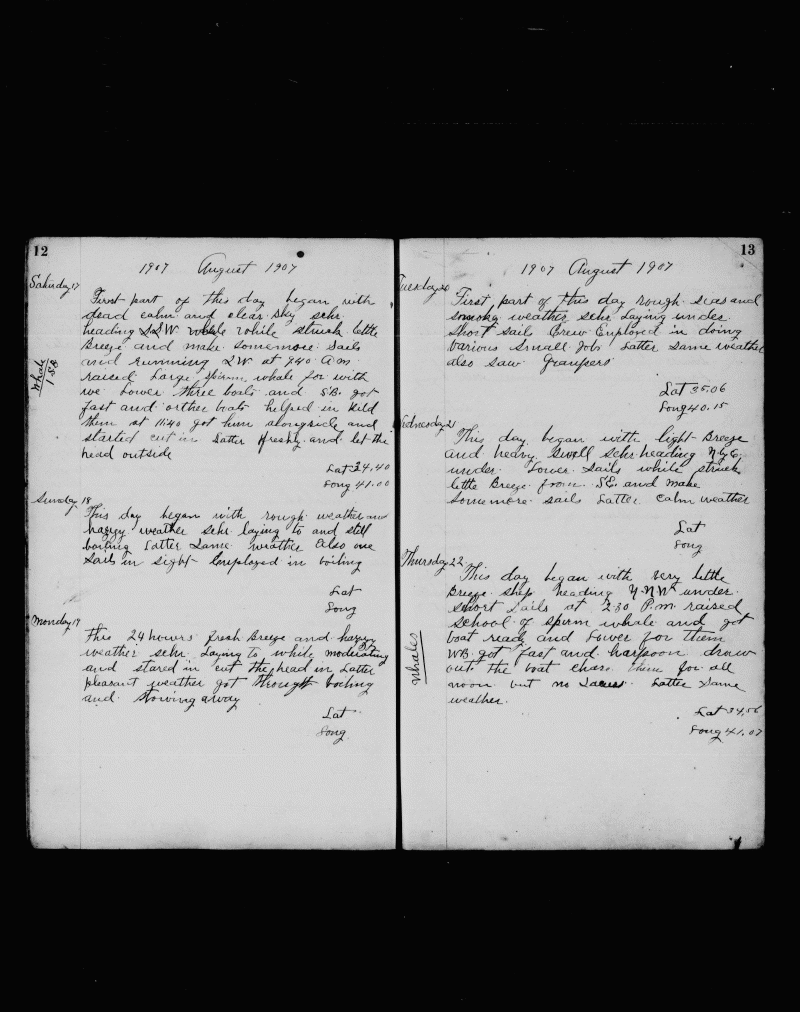 12
1907 August 1907
Saturday 17
First part of this day began with
dead calm and clear sky schr.
heading SSW while struck little
Breeze and make somemore sails
and running SW at 7.40 A.m.
Whale
1 S.B.
raised Large sperm whale for with
we Lower three boats and S.B. got
fast and orther boats helped in kild
them at 11.40 got him alongside and
started cut in Latter freshly and let the
head outside
Lat 34.40
Long 41.00
Sunday 18
This day began with rough weather and
hazzy weather schr. laying to and still
boiling Latter Same weather Also one
Sails in sight Employed in boiling
Lat
Long
Monday 19
This 24 hours fresh Breeze and hazzy
weather schr. Laying to while moderating
and stared in cut the head in Latter
pleasant weather got through boiling
and stowing away
Lat
Long
13
1907 August 1907
Tuesday 20
First part of this day rough seas and
smoky weather schr Laying under
Short sail Crew Employed in doing
various small Jobs Latter Same weather
also saw Graupers
Lat 35.06
Long 40.15
Wednesday 21
This day began with light Breeze
and heavy swell schr. heading N by E.
under Lower Sails while struck
little Breeze from S.E. and make
somemore sails Latter calm weather
Lat
Long
Thursday 22
This day began with very little
Breeze ship heading N.NW under
short Sails at 2.30 P.m. raised
School of sperm whale and got
boat ready and Lower for them
Whales
WB. got fast and harpoon draw
out the boat chase them for all
noon but no Latter Same
weather.
Lat 34.56
Long 41.07